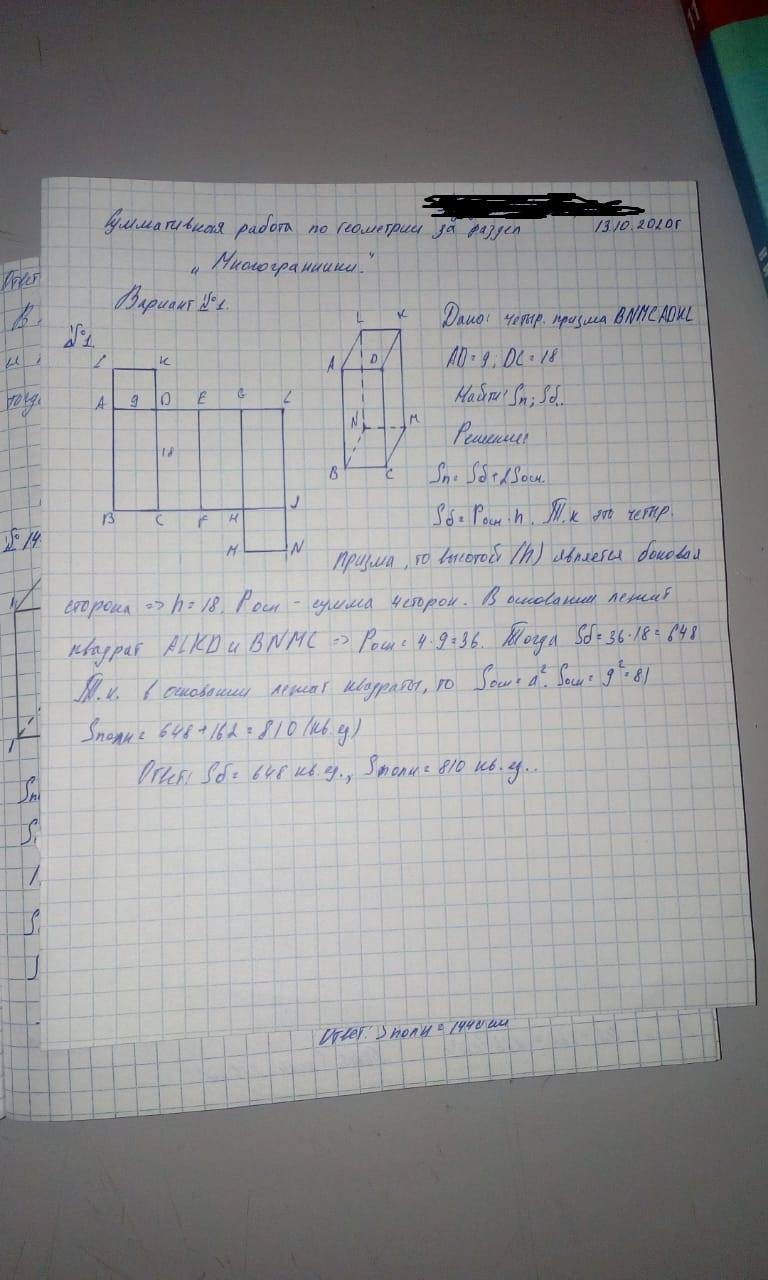 Суммативная работа по геометрии за раздел 13.10.2020г
"Многогранники."
Вариант №1.
№1.
L K
A 9 D E G L
18
B C F H J
M N
L K
A D
N M
B C
Дано: четыр. призма BNMCADKL
AD = 9; DC = 18
Найти: Sп; Sб.
Решение:
Sп = Sб + 2Sосн.
Sб = Pосн · h. Т.к это четыр.
призма, то высотой (h) является боковая
сторона => h = 18. Pосн - сумма 4 сторон. В основании лежит
квадрат ALKD и BNMC => Pосн = 4 · 9 = 36. Тогда Sб = 36 · 18 = 648
Т.к. в основании лежат квадраты, то Sосн = a². Sосн = 9² = 81
Sполн = 648 + 162 = 810 (кв. ед)
Ответ: Sб = 648 кв. ед., Sполн = 810 кв. ед..
Ответ
В
и
тогд
№14
Sп
S
1
S
Ответ: Sполн = 1440 см